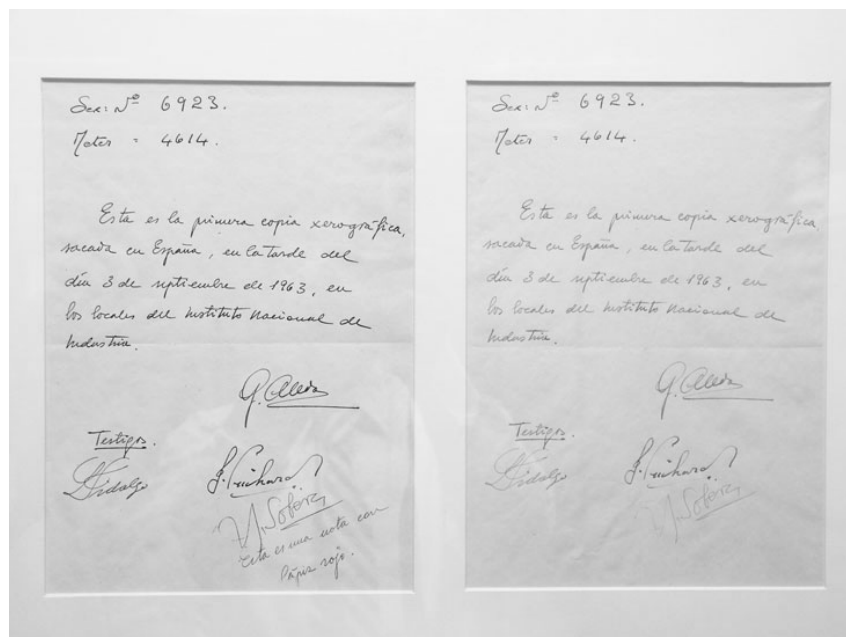 Ser: Nº 6923.
Meter = 4614.
Esta es la primera copia xerográfica,
sacada en España, en la tarde del
día 3 de septiembre de 1963, en
los locales del Instituto Nacional de
Industria.
G.
Testigos.
Hidalgo
Esta es una nota con
lápiz rojo.
Ser: Nº 6923.
Meter = 4614.
Esta es la primera copia xerográfica,
sacada en España, en la tarde del
día 3 de septiembre de 1963, en
los locales del Instituto Nacional de
Industria.
G.
Testigos.
Hidalgo